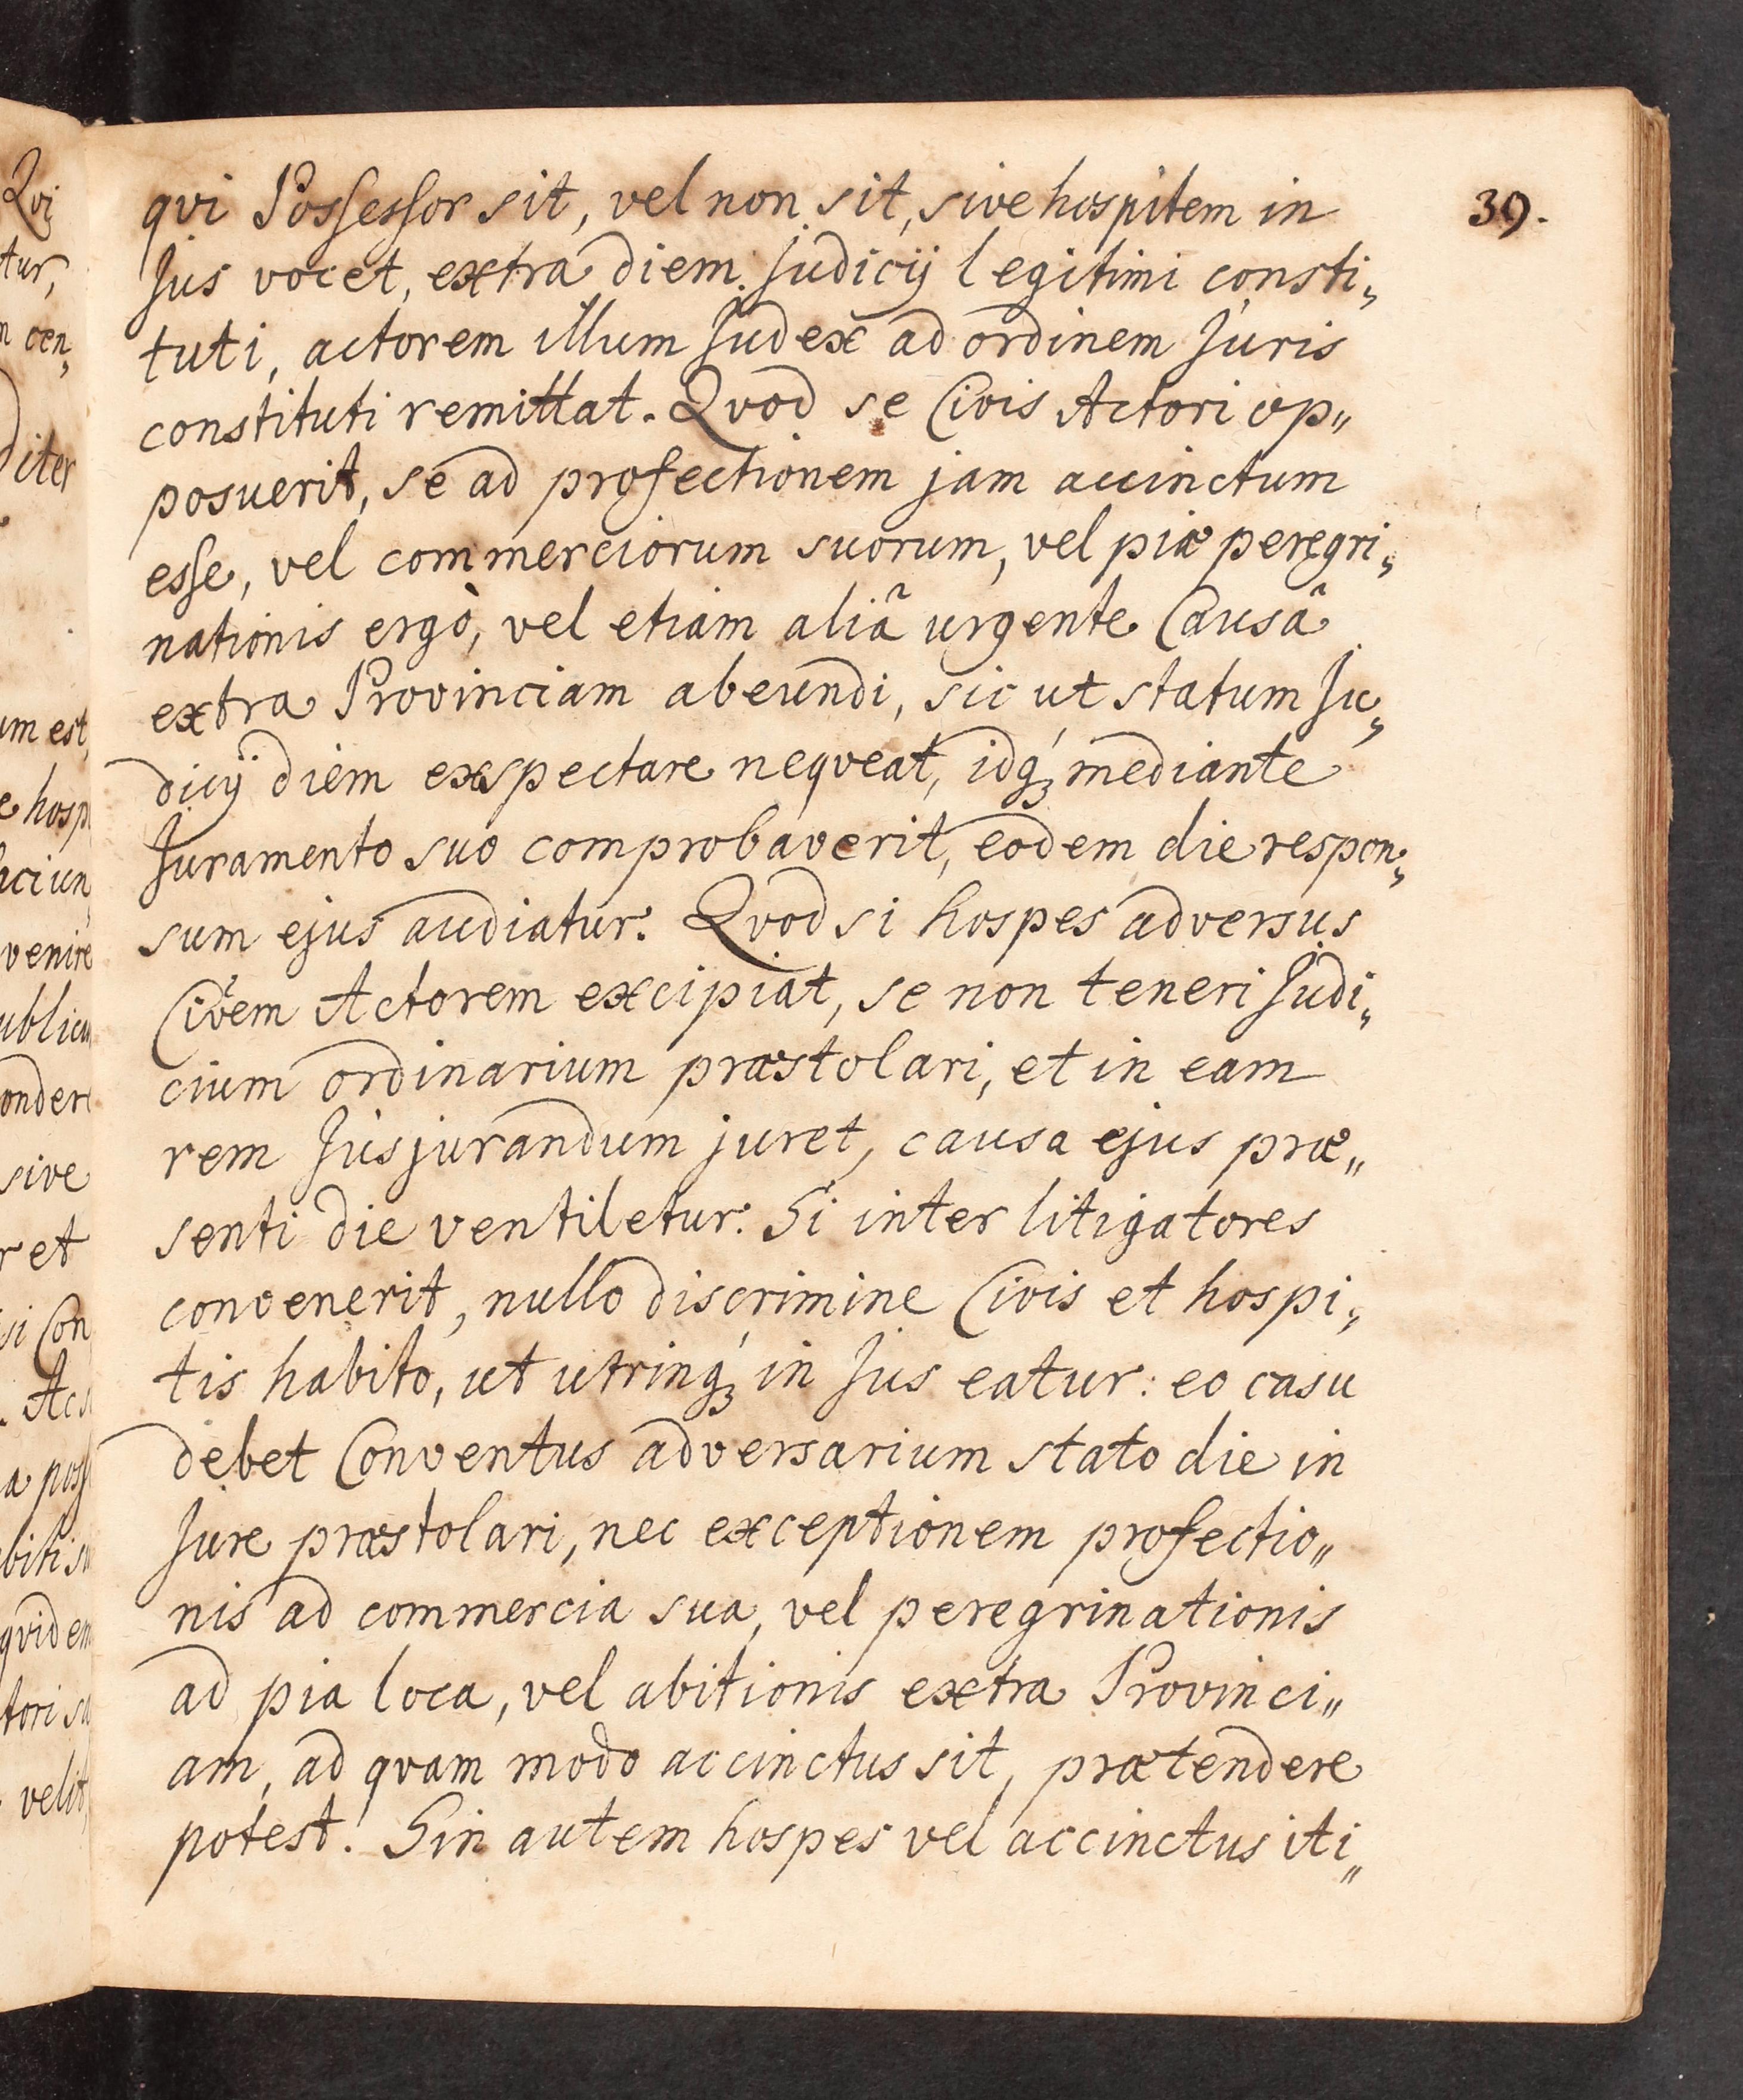 39.
qvi Possessor sit, vel non sit, sive hospitem in
Jus vocet, extra diem Judicij legitimi consti„
tuti, actorem illum Judex ad ordinem Juris
constituti remittat. Qvod se Civis Actori op„
posuerit, se ad profectionem jam accinctum
esse, vel commerciorum suorum, vel piæ peregri„
nationis ergò, vel etiam aliâ urgente Causâ
extra Provinciam abeundi, sic ut statum Ju„
dicij diem exspectare neqveat, idq́ȝ mediante
Juramento suo comprobaverit, eodem die respon„
sum ejus audiatur. Qvod si hospes adversus
Civem Actorem excipiat, se non teneri Judi„
cium ordinarium præstolari, et in eam
rem Jusjurandum juret, causa ejus præ„
senti die ventiletur. Si inter litigatores
convenerit, nullo discrimine Civis et hospi„
tis habito, ut utrinq́ȝ in Jus eatur: eo casu
debet Conventus adversarium stato die in
Jure præstolari, nec exceptionem profectio„
nis ad commercia sua, vel peregrinationis
ad pia loca, vel abitionis extra Provinci„
am, ad qvam modo accinctus sit, prætendere
potest. Sin autem hospes vel accinctus iti„